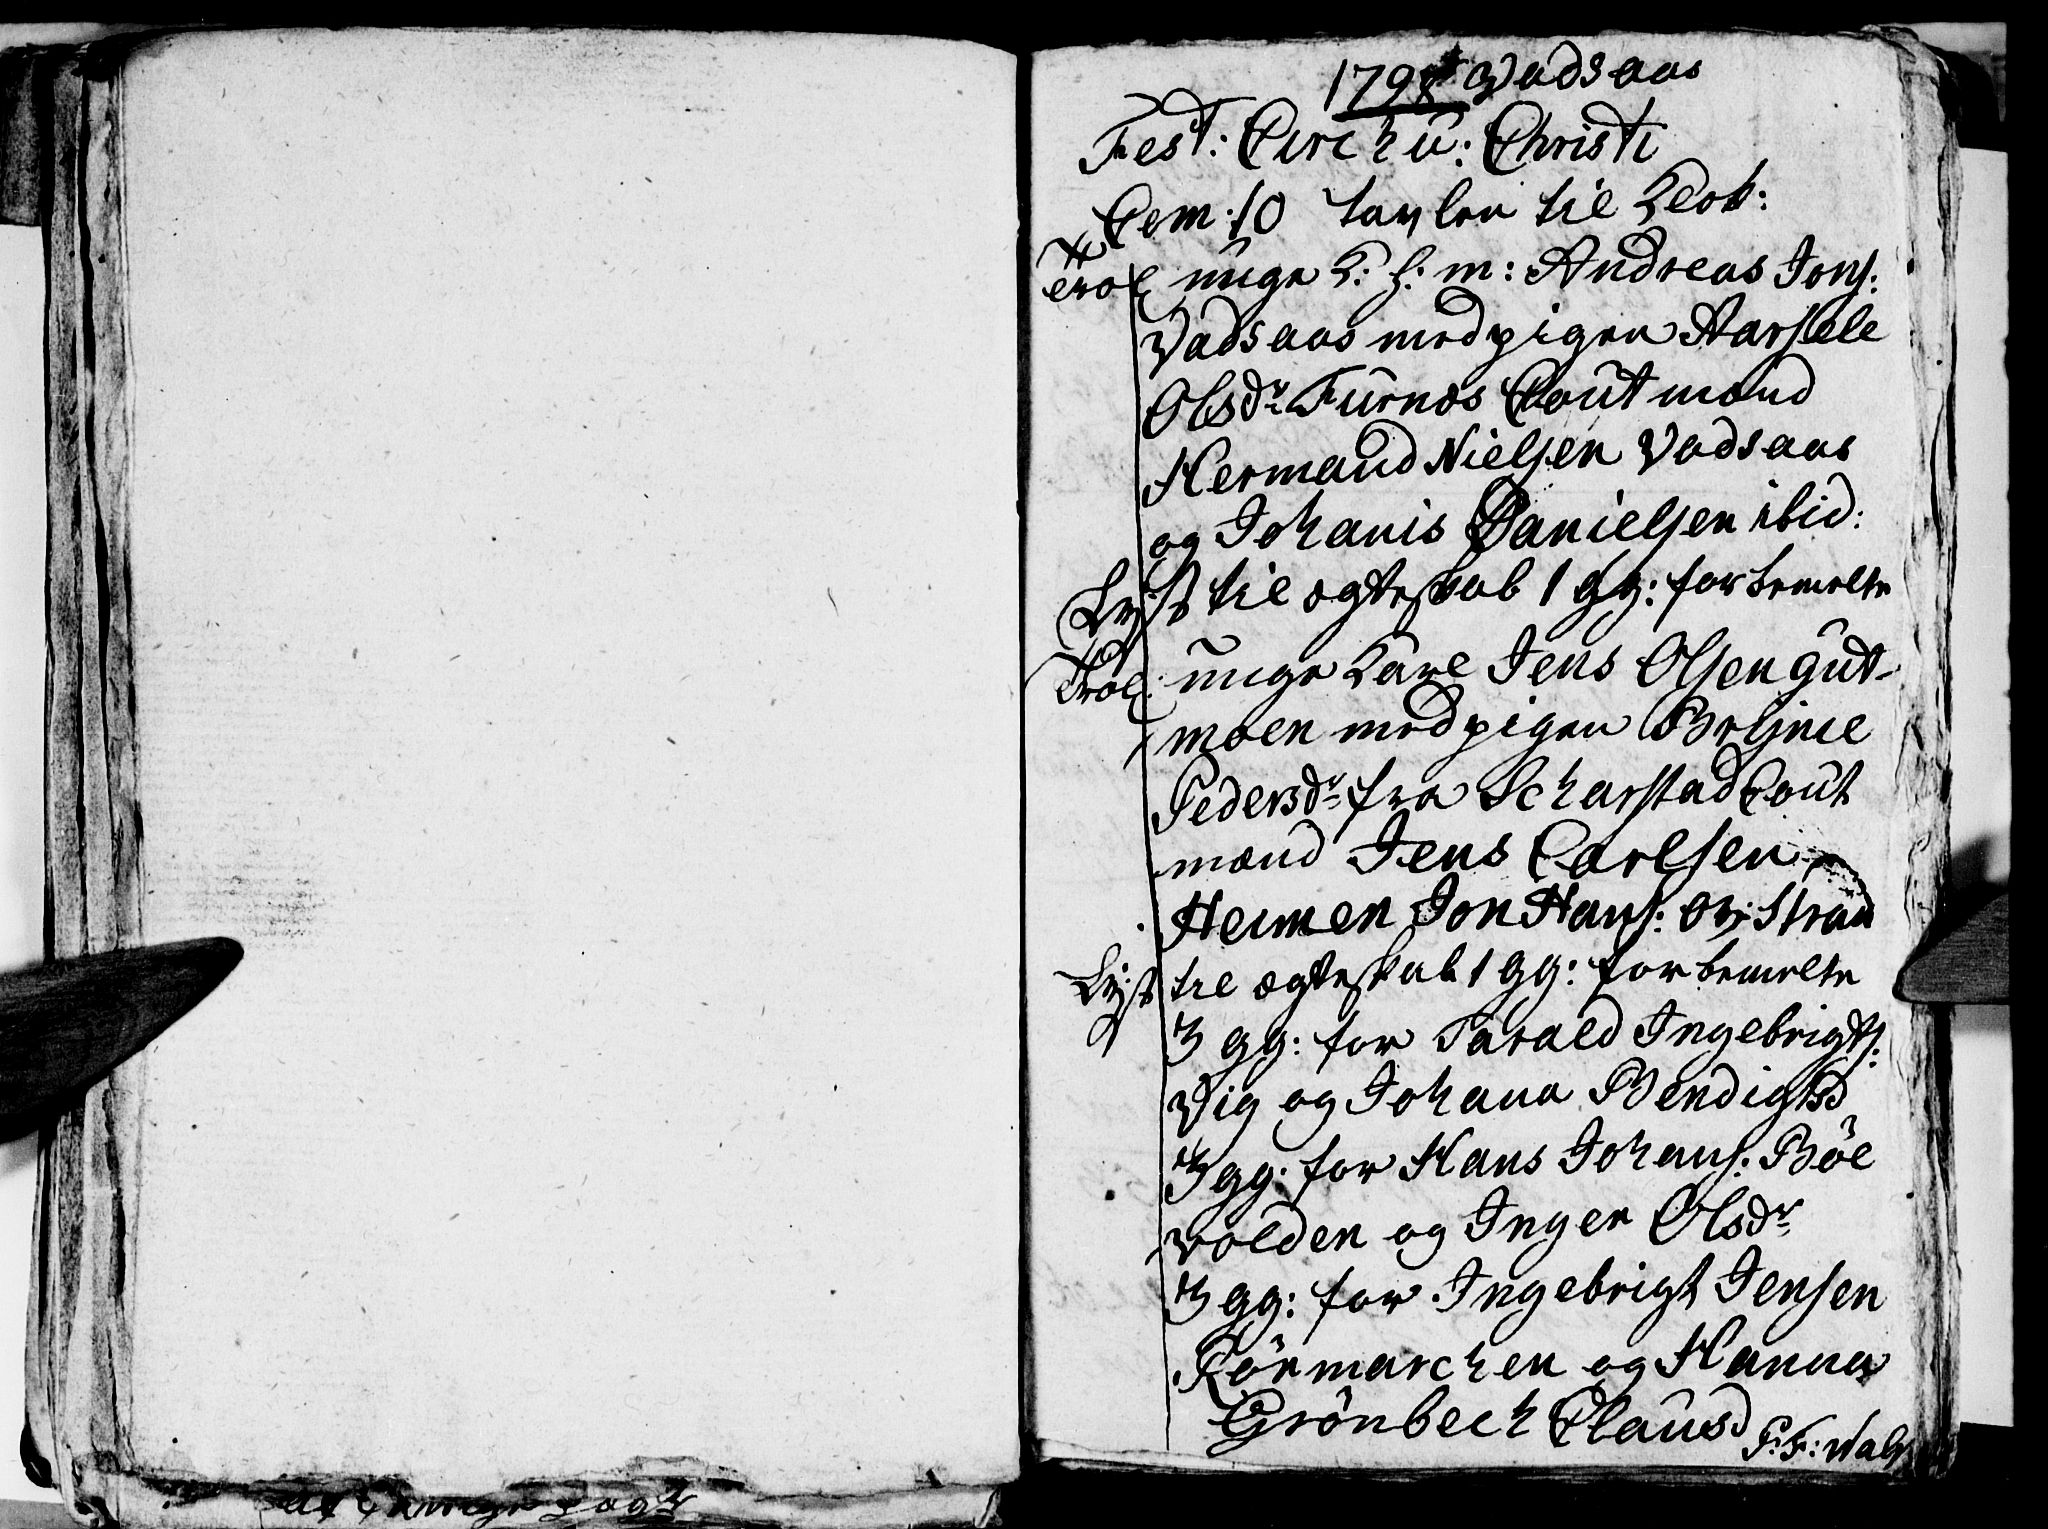 1798 Vadsaas
Fest: Circu: Christi
Com: 10 tavlen til Klok:
Trol: unge K: h: m: Andreas Jons:
Vadsaas med pigen Aarsele
Olsdr Furnæs Cout mænd
Hermand Nielsen Vadsaas
og Johanis Danielsen ibid:
Lyst til ægteskab 1 gg: for bemelte
Trol: unge Karl Jens Olsen Gut-
moen med pigen Brljnie
Pedersdr fra Scharstad Cout
mænd Jens Carlsen
Heimen Jon Hans: Strand
Lyst til ægteskab 1 gg: for bemelte
3 gg: for Tarald Ingebrigts:
Vig og Johana Bendigtsd
3 gg: for Hans Johans: Böl
volden og Inger Olsdr
3 gg: for Ingebrigt Jensen
Rörmarchen og Hanna
Grönbech Clausd P: F: Wals